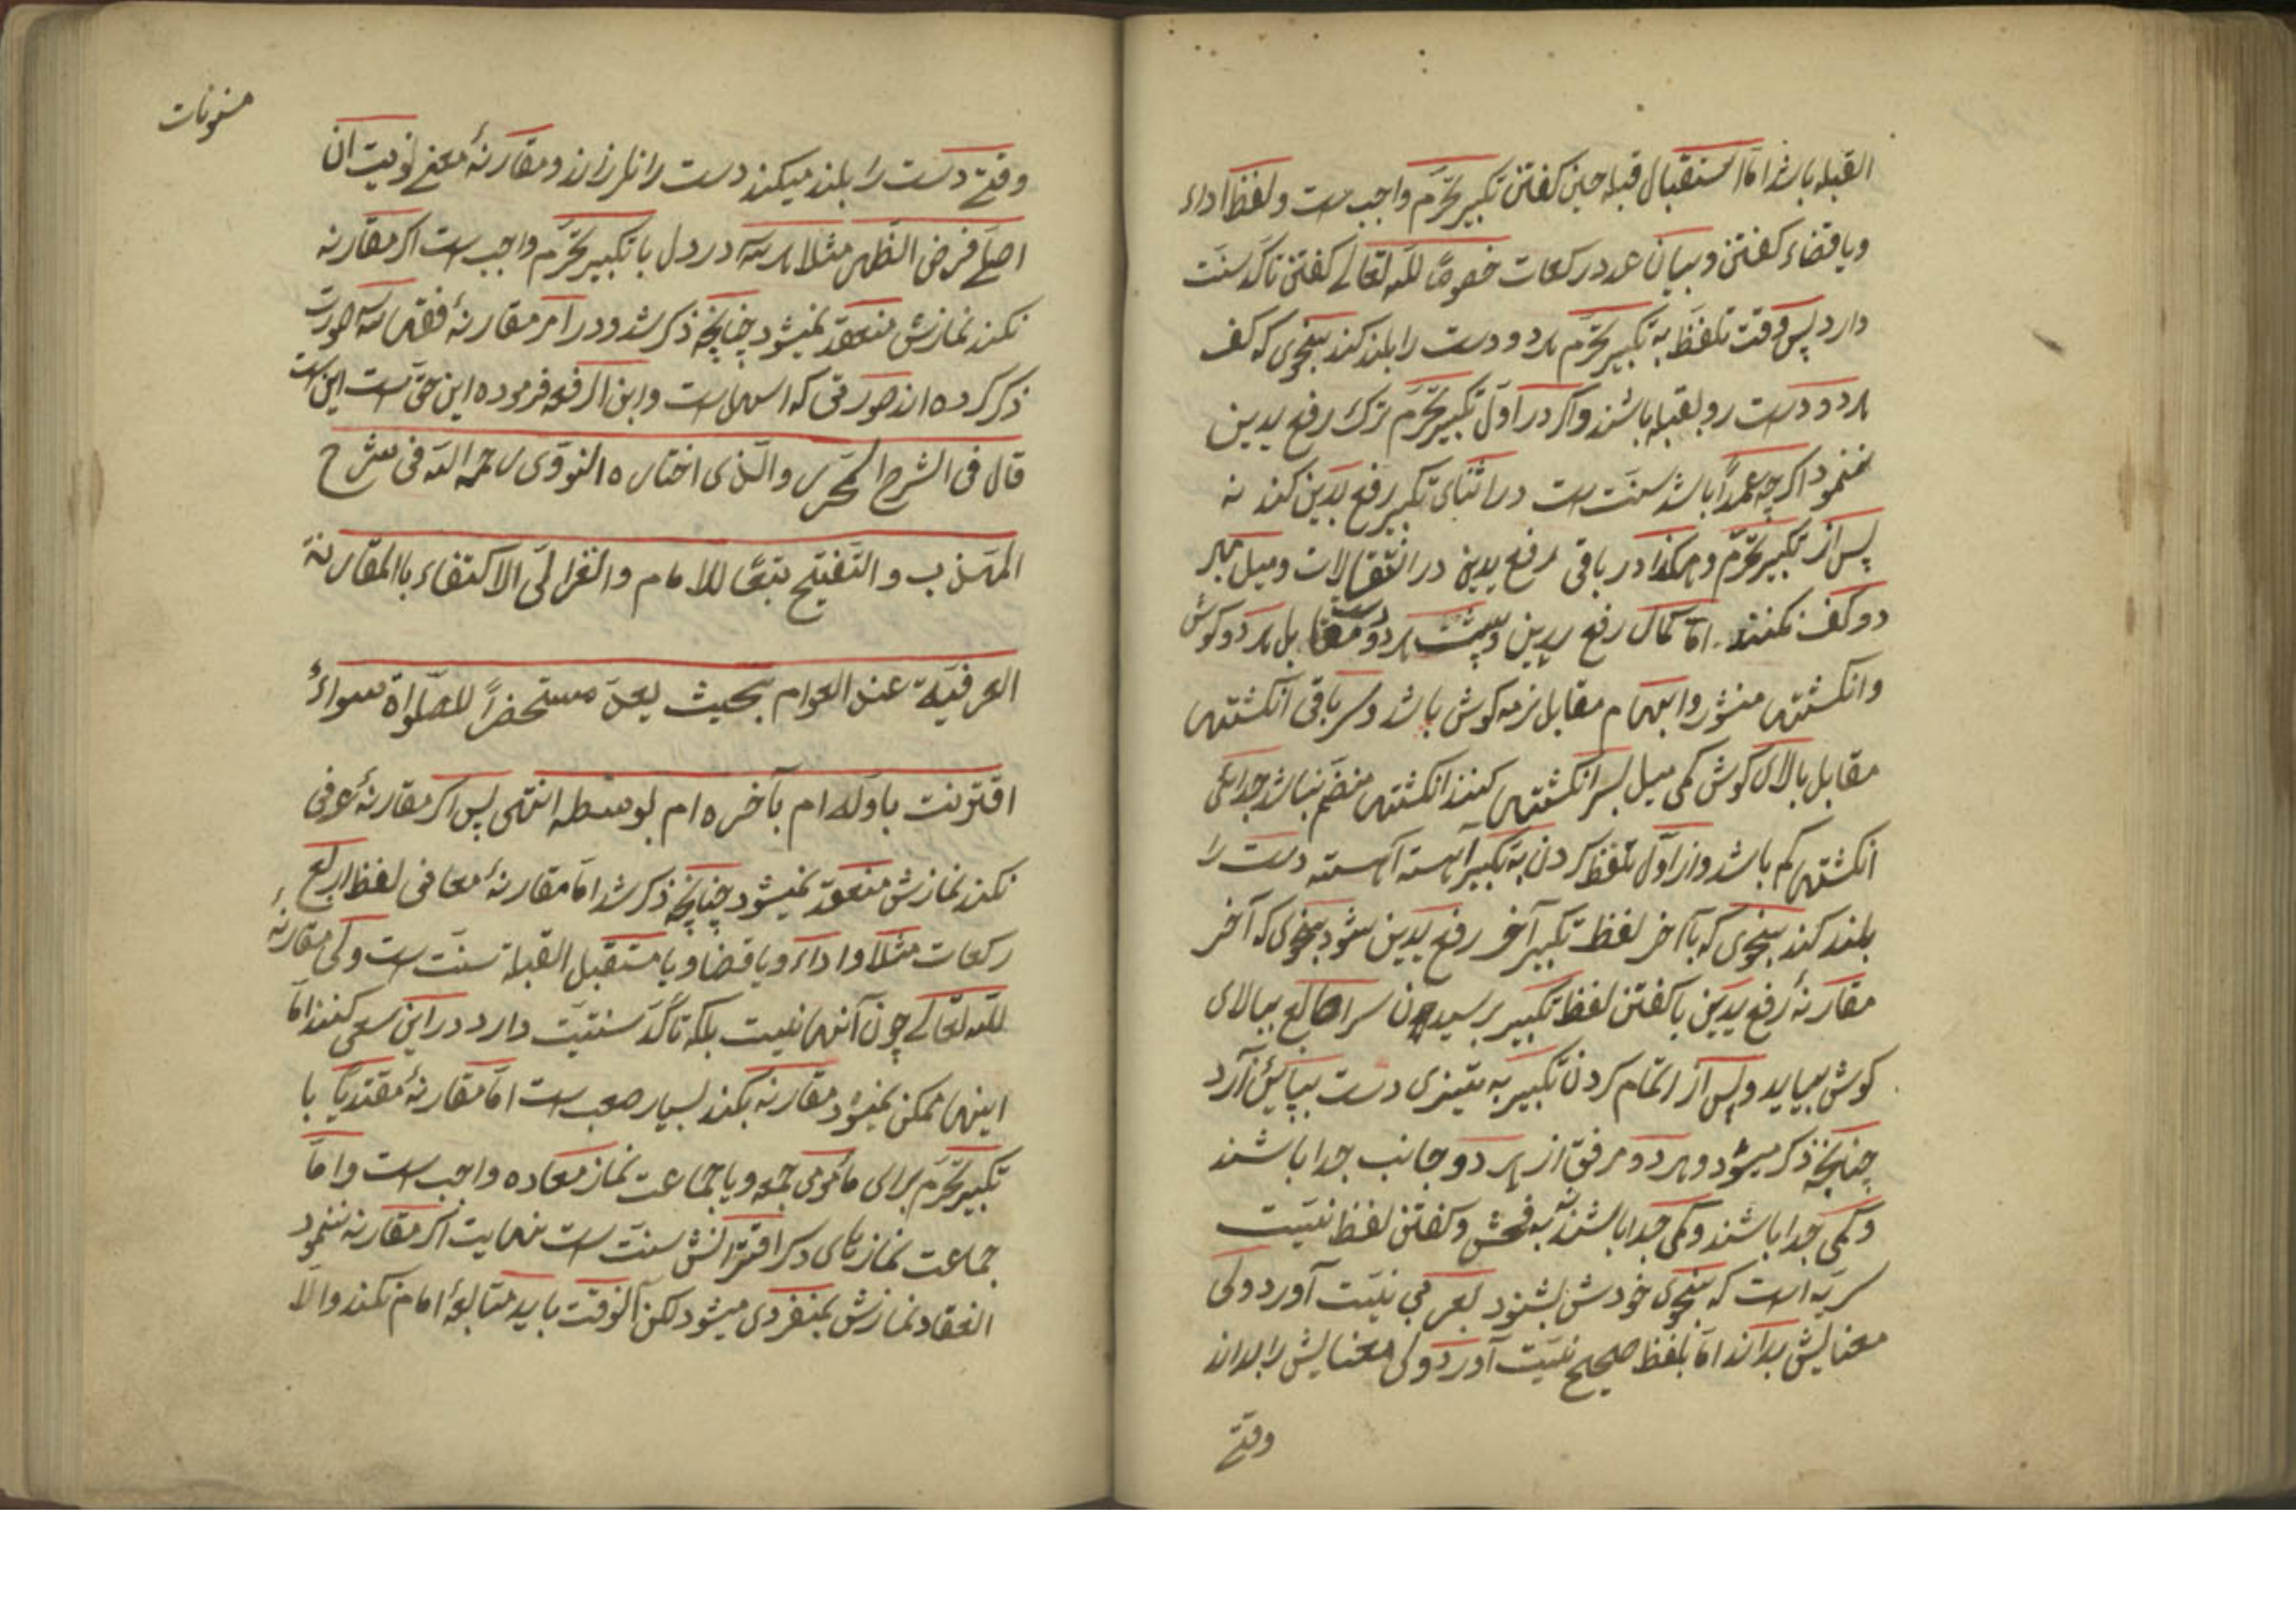 القبله باشد امّا استقبال قبله حین کفتن تکبیر تحرّم واجب است و لفظ اداء
و یا قضاء کفتن و بیان عدد رکعات خصوصًا للّه تعالی کفتن تاکّد سنّت
دارد پس وقت تلفّظ به تکبیر تحرّم هر دو دست را بلند کند بنحوی که کف
هر دو دست رو بقبله باشند و اکر در اوّل تکبیر تحرّم ترک رفع یدین
ننمود اکرچه عمدًا باشد سنّت است در اثنای تکبیر رفع یدین کند نه
پس از تکبیر تحرّم و هکذا در باقی رفع یدین در انتقالات و میل بهر
دو کف نکنند امّا کمال رفع یدین و پشت هر دو دست مقابل هر دو کوش
و انکشتها منشور و ابهام مقابل نرمه کوش باشد و سر باقی انکشتها
مقابل بالای کوش کمی میل بسر انکشتها کنند انکشتها منضم نباشد جدایی
انکشتها کم باشد و از اوّل تلفظ کردن به تکبیر آهسته آهسته دست را
بلند کند بنحوی که بآخر لفظ تکبیر آخر رفع یدین شود بنحوی که آخر
مقارنهٔ رفع یدین با کفتن لفظ تکبیر برسید چون سر اصابع ببالای
کوش بیاید و پس از اتمام کردن تکبیر به تیزی دست بپایین آرد
چنانچه ذکر میشود و هر دو مرفق از هر دو جانب جدا باشند
و کمی جدا باشند و کمی جدا باشند نه فحش و کفتن لفظ نیّت
سریّه است که بنحوی خودش بشنود بعربی نیّت آورد ولی
معنایش بداند امّا بلفظ صحیح نیّت آورد ولی معنایش را بداند
وقتی
مسنونات
وقتی دست را بلند میکند دست را نلرزاند و مقارنهٔ معنی نویت ان
اصلّی فرض الظهر مثلا هر سه در دل با تکبیر تحرّم واجب است اکر مقارنه
نکند نمازش منعقد نمیشود چنانچه ذکر شد و در امر مقارنهٔ فقها سه صورت
ذکر کرده اند صورتی که اسهل است و ابن الرفعه فرموده این حقّ است این است
قال فی الشرح المحرر والّذی اختاره النووی رحمه اللّه فی شرح
المهذب والتّنقیح تبعًا للامام والغزالیّ الاکتفاء باالمقارنة
العرفیّة عند العوام بحیث یعدّ مستحضرًا للصّلواة سواءً
اقترنت باوّله ام بآخره ام بوسطه انتهی پس اکر مقارنهٔ عرفی
نکند نمازش منعقد نمیشود چنانچه ذکر شد امّا مقارنهٔ معانی لفظ اربع
رکعات مثلا و اداء و یا قضا و یا مستقبل القبلة سنّت است ولی مقارنهٔ
للّه تعالی چون آنها نیست بلکه تاکّد سنّتیت دارد در این سعی کنند امّا
اینها ممکن نمیشود مقارنه بکند بسیار صعب است امّا مقارنهٔ مقتدیًا با
تکبیر تحرّم برای مأمومی جمعه و یا جماعت نماز معاده واجب است و امّا
جماعت نمازهای دکر اقترانش سنّت است نهایت اکر مقارنه ننمود
انعقاد نمازش بمنفردی میشود لکن آنوقت باید متابعهٔ امام نکند والّا